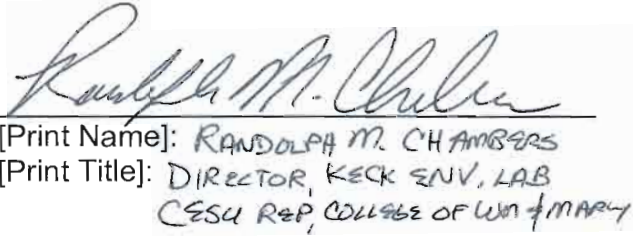 Randolph M. Chambers
[Print Name]: RANDOLPH M. CHAMBERS
[Print Title]: DIRECTOR, KECK ENV. LAB
CESU REP, COLLEGE OF WM & MARY